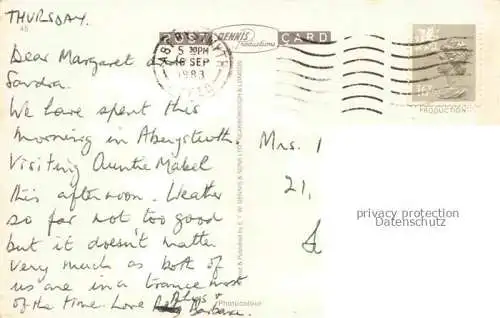 THURSDAY.
POST DENNIS Productions CARD
5 30PM
16 SEP
1983
Dear Margaret and
Sandra.
We have spent this
morning in Aberystwyth
Visiting Auntie Mabel
this afternoon. Weather
so far not too good
but it doesn't matter
very much as both of
us are in a trance most
of the time. Love
Barbara.
Mrs.
21,
PRODUCTION
privacy protection
Datenschutz
Photocolour